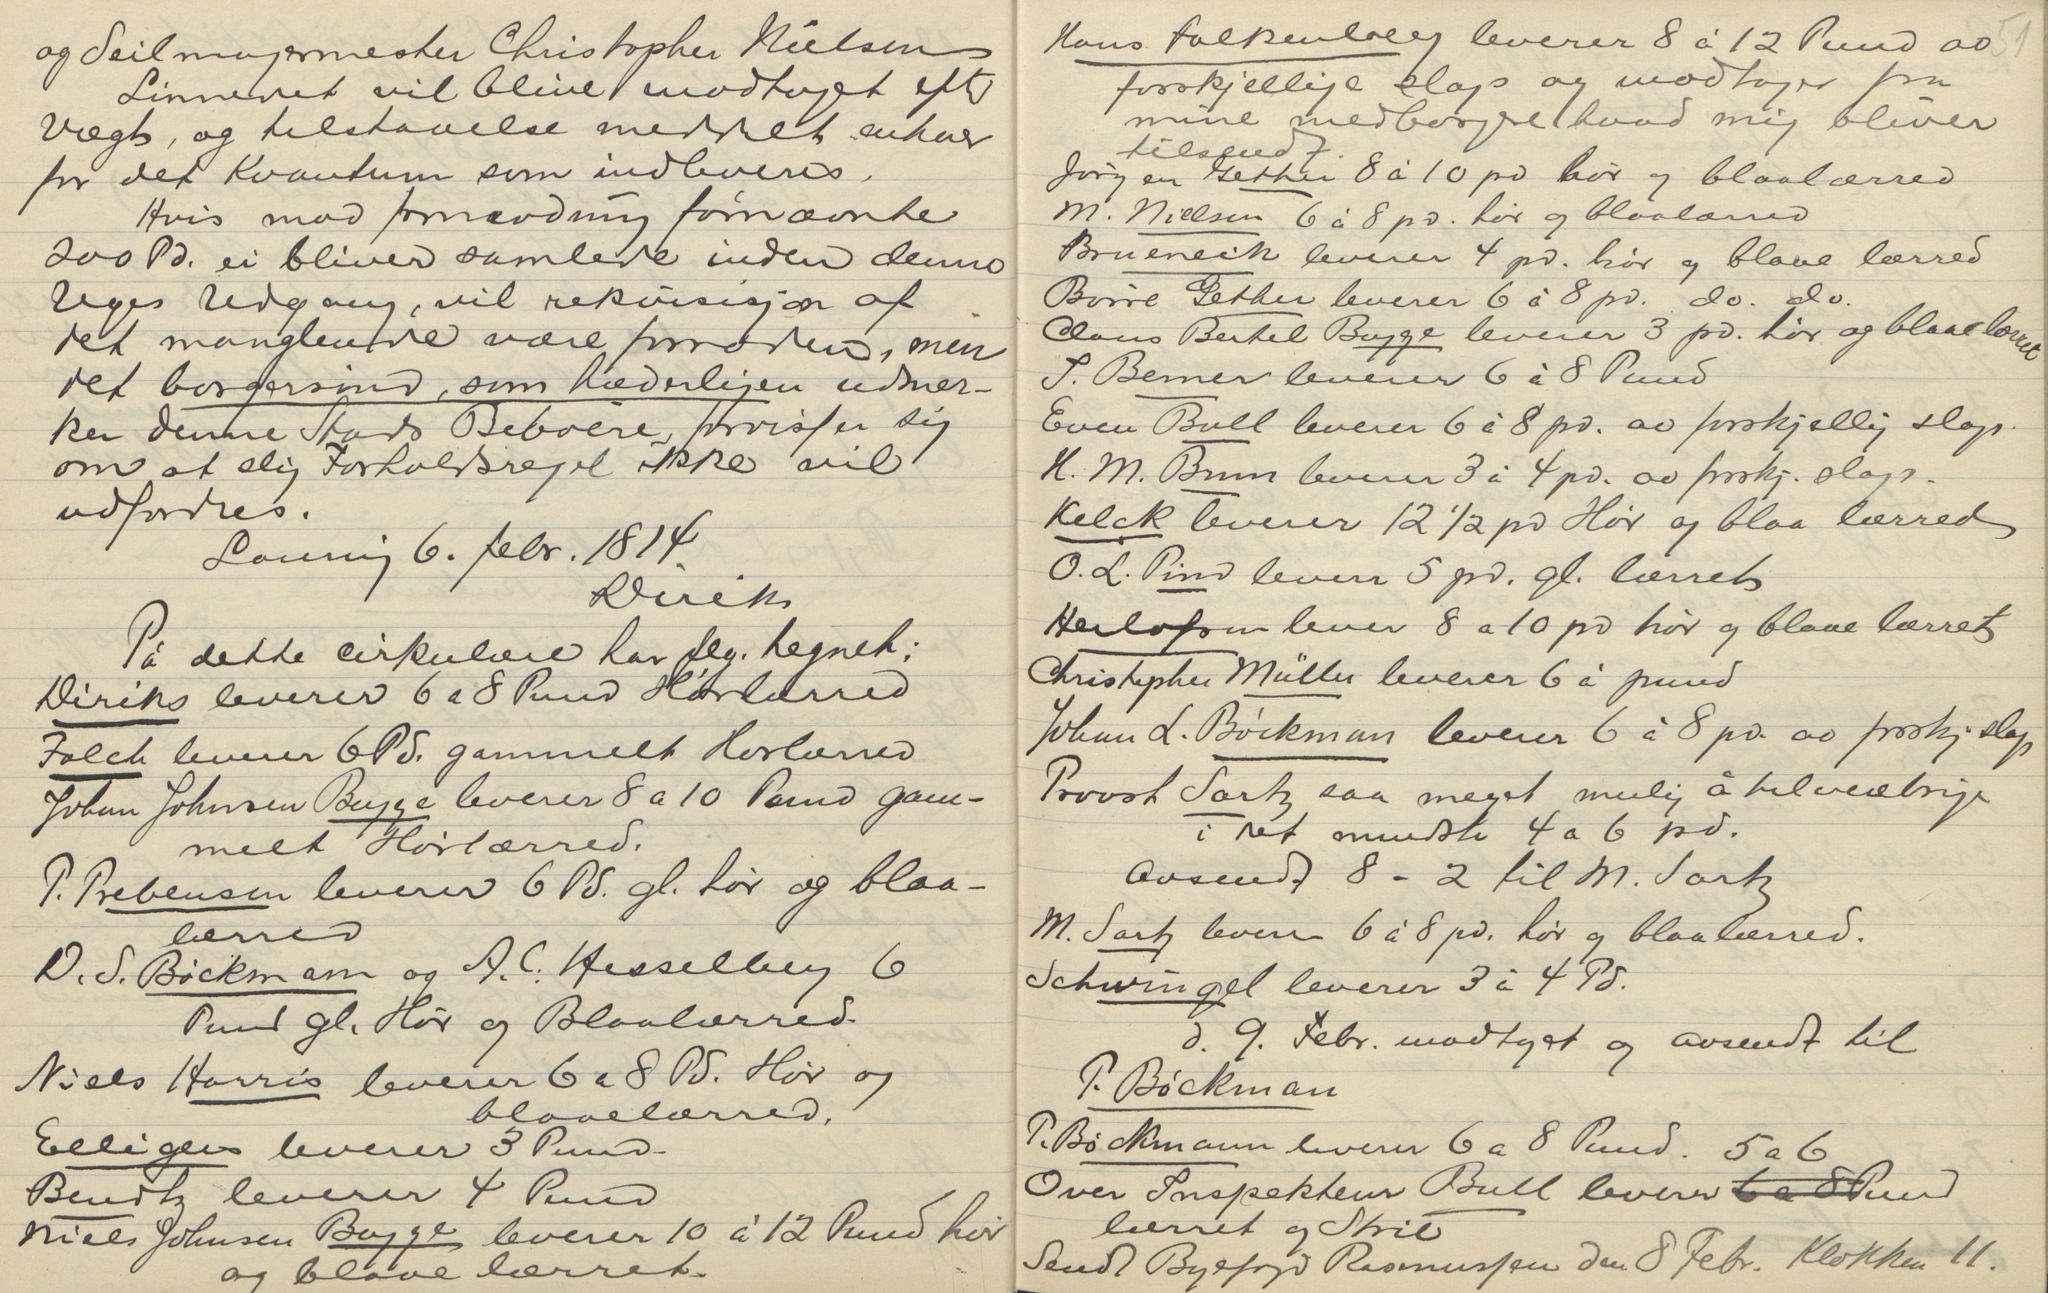 og Seilmagermester Christopher Nielsen
Linnevet vil blive modtaget eft
Vægt, og tilstaaelse meddelt enhver
for det Kvantum som indleveres.
Hvis mod formodning førnævnte
200 Pd. ei bliver samlede inden denne
Uges Udgang, vil rekvisisjon af
det manglende være fornøden, men
det borgersind, som hæderligen udmer-
ker denne Stads Beboere, forvisser sig
om at slig Forholdsregel ikke vil
udfordres.
Laurvig 6. febr. 1814
Diriks
På dette cirkulære har flg. tegnet:
Diriks leverer 6 a 8 Pund Hørlærred
Falch leverer 6 Pd. gammelt Hørlærred
Johan Johnsen Bugge leverer 8 a 10 Pund gam-
melt Hørlærred.
P. Prebensen leverer 6 Pd. gl. hør og blaa-
lærred
D. S. Bøckmann og A. C. Hesselberg 6
Pund gl. Hør og Blaalærred.
Niels Harris leverer 6 a 8 Pd. Hør og
blaaelærred.
Elligers leverer 3 Pund.
Bendtz leverer 4 Pund
Niels Johnsen Bugge leverer 10 à 12 Pund hør
og blaae lærret.
51
Hans Falkenberg leverer 8 à 12 Pund av
forskjellige slags og modtager fra
mine medborgere hvad mig bliver
tilsendt.
Jørgen Gether 8 à 10 pd hør og blaalærred
M. Nielsen 6 à 8 pd. hør og blaalærred
Brunenich leverer 4 pd. hør og blaae lærred
Børre Gether leverer 6 à 8 pd. do. do.
Claus Bertel Bugge leverer 3 pd. hør og blaae lærret
S. Berner leverer 6 à 8 Pund
Even Bull leverer 6 à 8 pd. av forskjellig slags.
H. M. Brun leverer 3 à 4 pd. av forskj. slags.
Kelck leverer 12 1/2 pd Hør og blaa lærred
O. L. Pind leverer 5 pd. gl. lærret
Herlofsen lever 8 a 10 pd hør og blaae lærret
Christopher Müller leverer 6 à pund
Johan L. Bøckman leverer 6 à 8 pd. av forskj slags
Provst Sartz saa meget mulig å tilveiebringe
i det mindste 4 a 6 pd.
avsendt 8 - 2 til M. Sartz
M. Sartz leverer 6 à 8 pd. hør og blaalærred.
Schwingel leverer 3 à 4 Pd.
d. 9. Febr. modtaget og avsendt til
P. Bøckman
P. Bøckmann leverer 6 a 8 Pund. 5 a 6
Over Inspekteur Bull leverer 6 a 8 Pund
lærret og Strie
Sendt Byefogd Rasmussen den 8 Febr. Klokken 11.